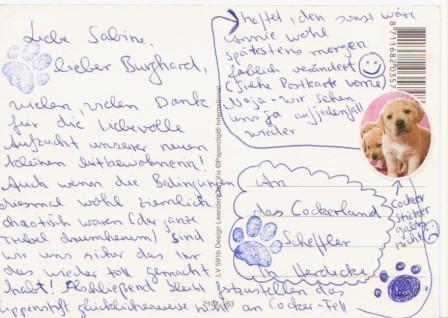 Liebe Sabine,
lieber Burghard,
vielen, vielen Dank
für die liebevolle
Aufzucht unserer neuen
kleinen Mitbewohnerin!
Auch wenn die Bedingungen
diesmal wohl ziemlich
chaotisch waren (der ganze
Trubel drumherum) sind
wir uns sicher das Ihr
das wieder toll gemacht
habt! Abschließend bleibt festzustellen das
Lippenstift glücklicherweise nicht an Cocker-Fell
haftet, den sonst wäre
Annie wohl
spätestens morgen
farblich verändert
(Siehe Postkarte vorne)
Naja - wir sehen
uns ja auf jedenfall
wieder
An
das Cockerland
Scheffler
in Herdicke
Cocker
sticker
gabs
nicht!
LV 5915 Design Leendert Jan Vis ©Paperclip® International
8 711682 0357
2101 163